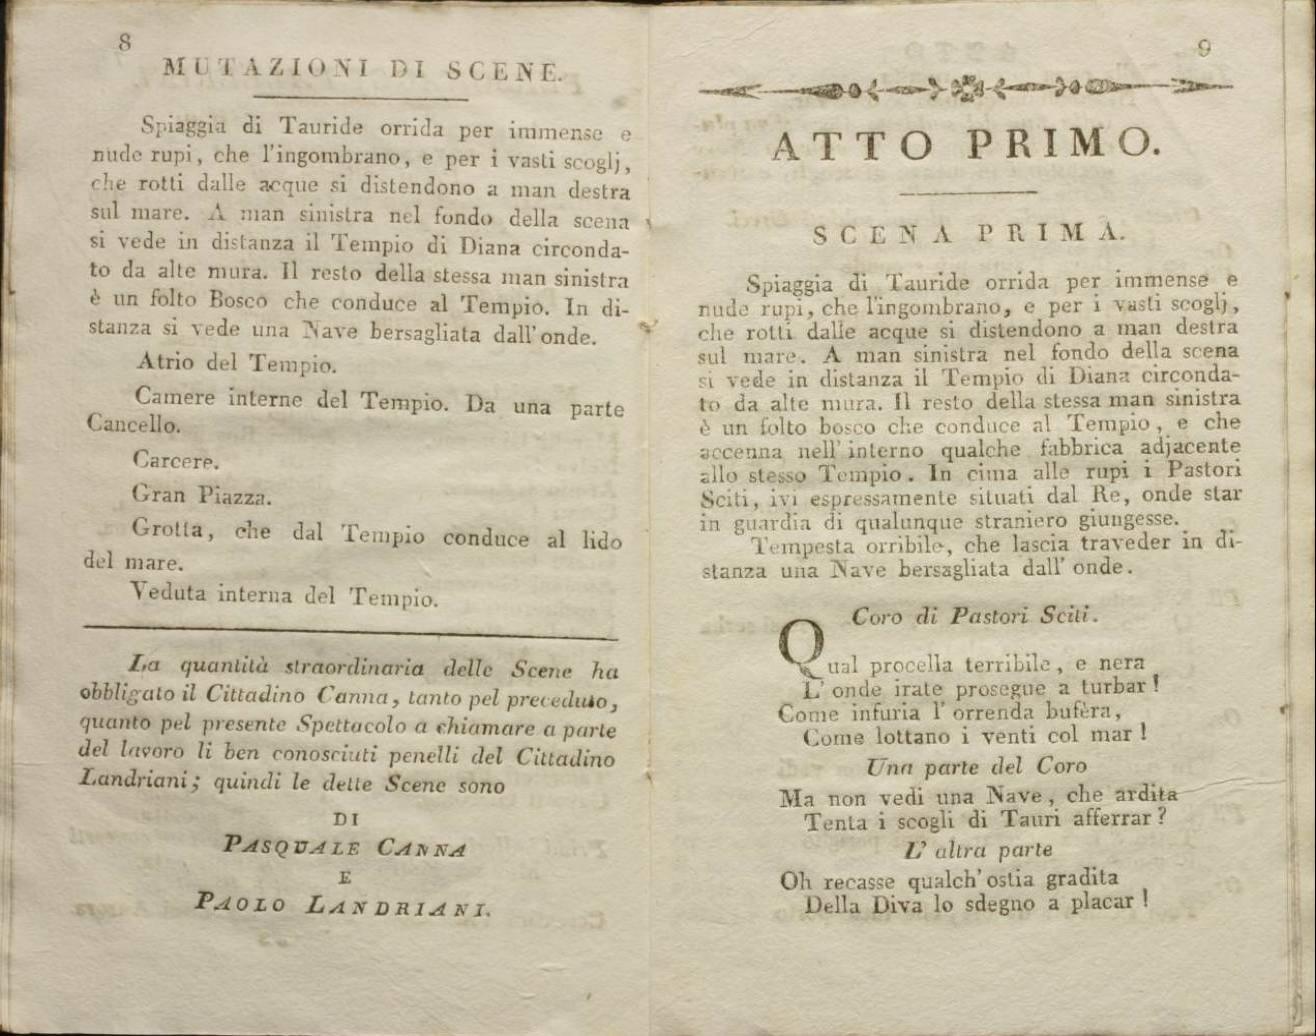 8
MUTAZIONI DI SCENE.
Spiaggia di Tauride orrida per immense e
nude rupi, che l'ingombrano, e per i vasti scoglj,
che rotti dalle acque si distendono a man destra
sul mare. A man sinistra nel fondo della scena
si vede in distanza il Tempio di Diana circonda-
to da alte mura. Il resto della stessa man sinistra
è un folto Bosco che conduce al Tempio. In di-
stanza si vede una Nave bersagliata dall'onde.
Atrio del Tempio.
Camere interne del Tempio. Da una parte
Cancello.
Carcere.
Gran Piazza.
Grotta, che dal Tempio conduce al lido
del mare.
Veduta interna del Tempio.
La quantità straordinaria delle Scene ha
obbligato il Cittadino Canna, tanto pel preceduto,
quanto pel presente Spettacolo a chiamare a parte
del lavoro li ben conosciuti penelli del Cittadino
Landriani; quindi le dette Scene sono
DI
PASQUALE CANNA
E
PAOLO LANDRIANI.
9
ATTO PRIMO.
SCENA PRIMA.
Spiaggia di Tauride orrida per immense e
nude rupi, che l'ingombrano, e per i vasti scoglj,
che rotti dalle acque si distendono a man destra
sul mare. A man sinistra nel fondo della scena
si vede in distanza il Tempio di Diana circonda-
to da alte mura. Il resto della stessa man sinistra
è un folto bosco che conduce al Tempio, e che
accenna nell'interno qualche fabbrica adjacente
allo stesso Tempio. In cima alle rupi i Pastori
Sciti, ivi espressamente situati dal Re, onde star
in guardia di qualunque straniero giungesse.
Tempesta orribile, che lascia traveder in di-
stanza una Nave bersagliata dall'onde.
Coro di Pastori Sciti.
Qual procella terribile, e nera
L'onde irate prosegue a turbar!
Come infuria l'orrenda bufèra,
Come lottano i venti col mar!
Una parte del Coro
Ma non vedi una Nave, che ardita
Tenta i scogli di Tauri afferrar?
L'altra parte
Oh recasse qualch'ostia gradita
Della Diva lo sdegno a placar!